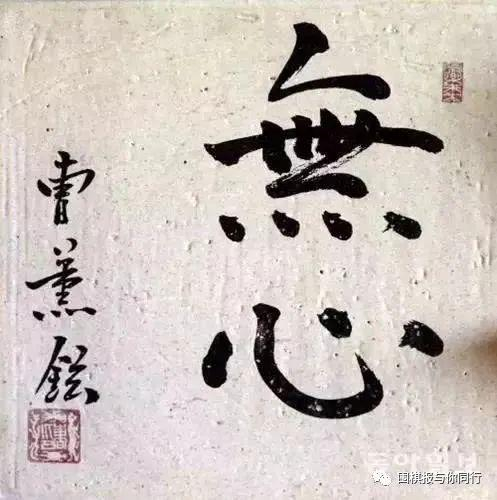 無心
曹薰鉉
围棋报与你同行